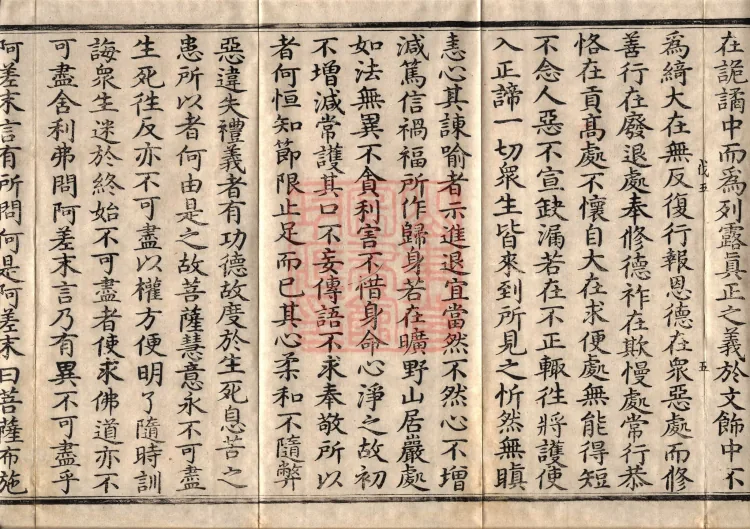 在詭譎中而為列露真正之義於文飾中不
為綺大在無反復行報恩德在眾惡處而修
善行在廢退處奉修德祚在欺慢處常行恭
恪在貢高處不懷自大在求便處無能得短
不念人惡不宣缺漏若在不正輒往將護使
入正諦一切眾生皆來到所見之忻然無瞋
戊五
五
恚心其諫喻者示進退宜當然不然心不增
減篤信禍福所作歸身若在曠野山居巖處
如法無異不貪利害不惜身命心淨之故初
不增減常護其口不妄傳語不求奉敬所以
者何恒知節限止足而已其心柔和不隨弊
惡違失禮義者有功德故度於生死息苦之
患所以者何由是之故菩薩慧意永不可盡
生死往反亦不可盡以權方便明了隨時訓
誨眾生迷於終始不可盡者使求佛道亦不
可盡舍利弗問阿差末言乃有異不可盡乎
阿差末言有所問何是阿差末曰菩薩布施